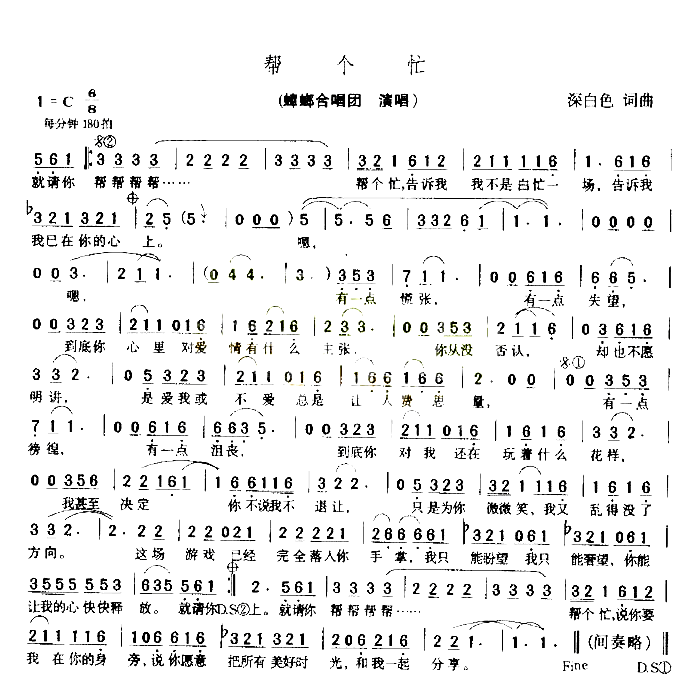 帮 个 忙
1=C 6/8 (蟑螂合唱团 演唱) 深白色 词曲
每分钟180拍
𝄋②
561 3333 2222 3333 321612 211116 1. 616
就请你 帮帮帮帮…… 帮个忙,告诉我 我不是白忙一 场,告诉我
321321 25 (5 000) 5 5.56. 33261 1.1. 0000
我已在你的心 上。 嗯,
003. 211. (044. 3.) 353 711. 00616 665.
嗯, 有一点 慌张, 有一点 失望,
00323 211016 16216 233. 00353 2116 00616
到底你 心里对爱 情有什么 主张, 你从没 否认, 却也不愿
𝄋①
332. 05323 211016 166166 2.00 00353
明讲, 是爱我或 不爱总是 让人费思 量, 有一点
711. 00616 6635. 00323 211016 1616 332.
彷徨, 有一点 沮丧, 到底你 对我还在 玩着什么 花样,
00356 22161 166116 221. 05323 222216 216116
我甚至 决定 你不说我不 退让, 只是为你 微微笑,我又 乱得没了
332. 2.22 22021 222221 266661 321061 321061
方向。 这场 游戏已经 完全落入你 手掌,我只 能盼望我只 能奢望,你能
555553 635561 561 3333 2222 3333 321612
让我的心快快释 放。就请你D.S②上。就请你 帮帮帮帮…… 帮个忙,说你要
211116 106616 321321 221. 1.1. (间奏略)
我 在你的身 旁,说你愿意 把所有美好时 光,和我一起 分享。 Fine D.S①